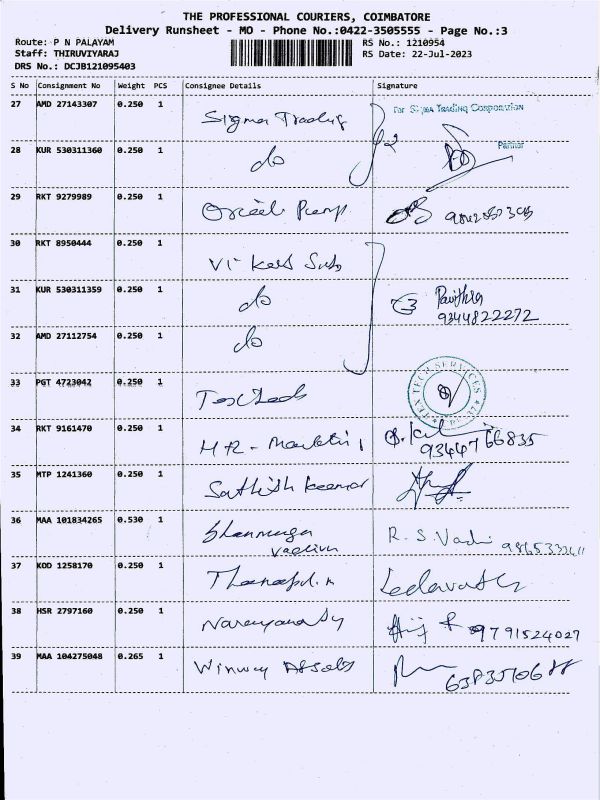 THE PROFESSIONAL COURIERS, COIMBATORE
Delivery Runsheet - MO - Phone No.:0422-3505555 - Page No.:3
Route: P N PALAYAM RS No.: 1210954
Staff: THIRUVIYARAJ RS Date: 22-Jul-2023
DRS No.: DCJB121095403
S No Consignment No Weight PCS Consignee Details Signature
27 AMD 27143307 0.250 1 Sigma Trading For Sigma Trading Corporation
Partner
28 KUR 530311360 0.250 1 do
29 RKT 9279989 0.250 1
30 RKT 8950444 0.250 1
31 KUR 530311359 0.250 1 do Pavithra
9344822272
32 AMD 27112754 0.250 1 do
33 PGT 4723042 0.250 1 TEX TECH SERVICES
34 RKT 9161470 0.250 1
9344766835
35 MTP 1241360 0.250 1 Sathish Kumar
36 MAA 101834265 0.530 1 Shanmuga R. S. Vadi
37 KOD 1258170 0.250 1
38 HSR 2797160 0.250 1 9791524027
39 MAA 104275048 0.265 1 Winway